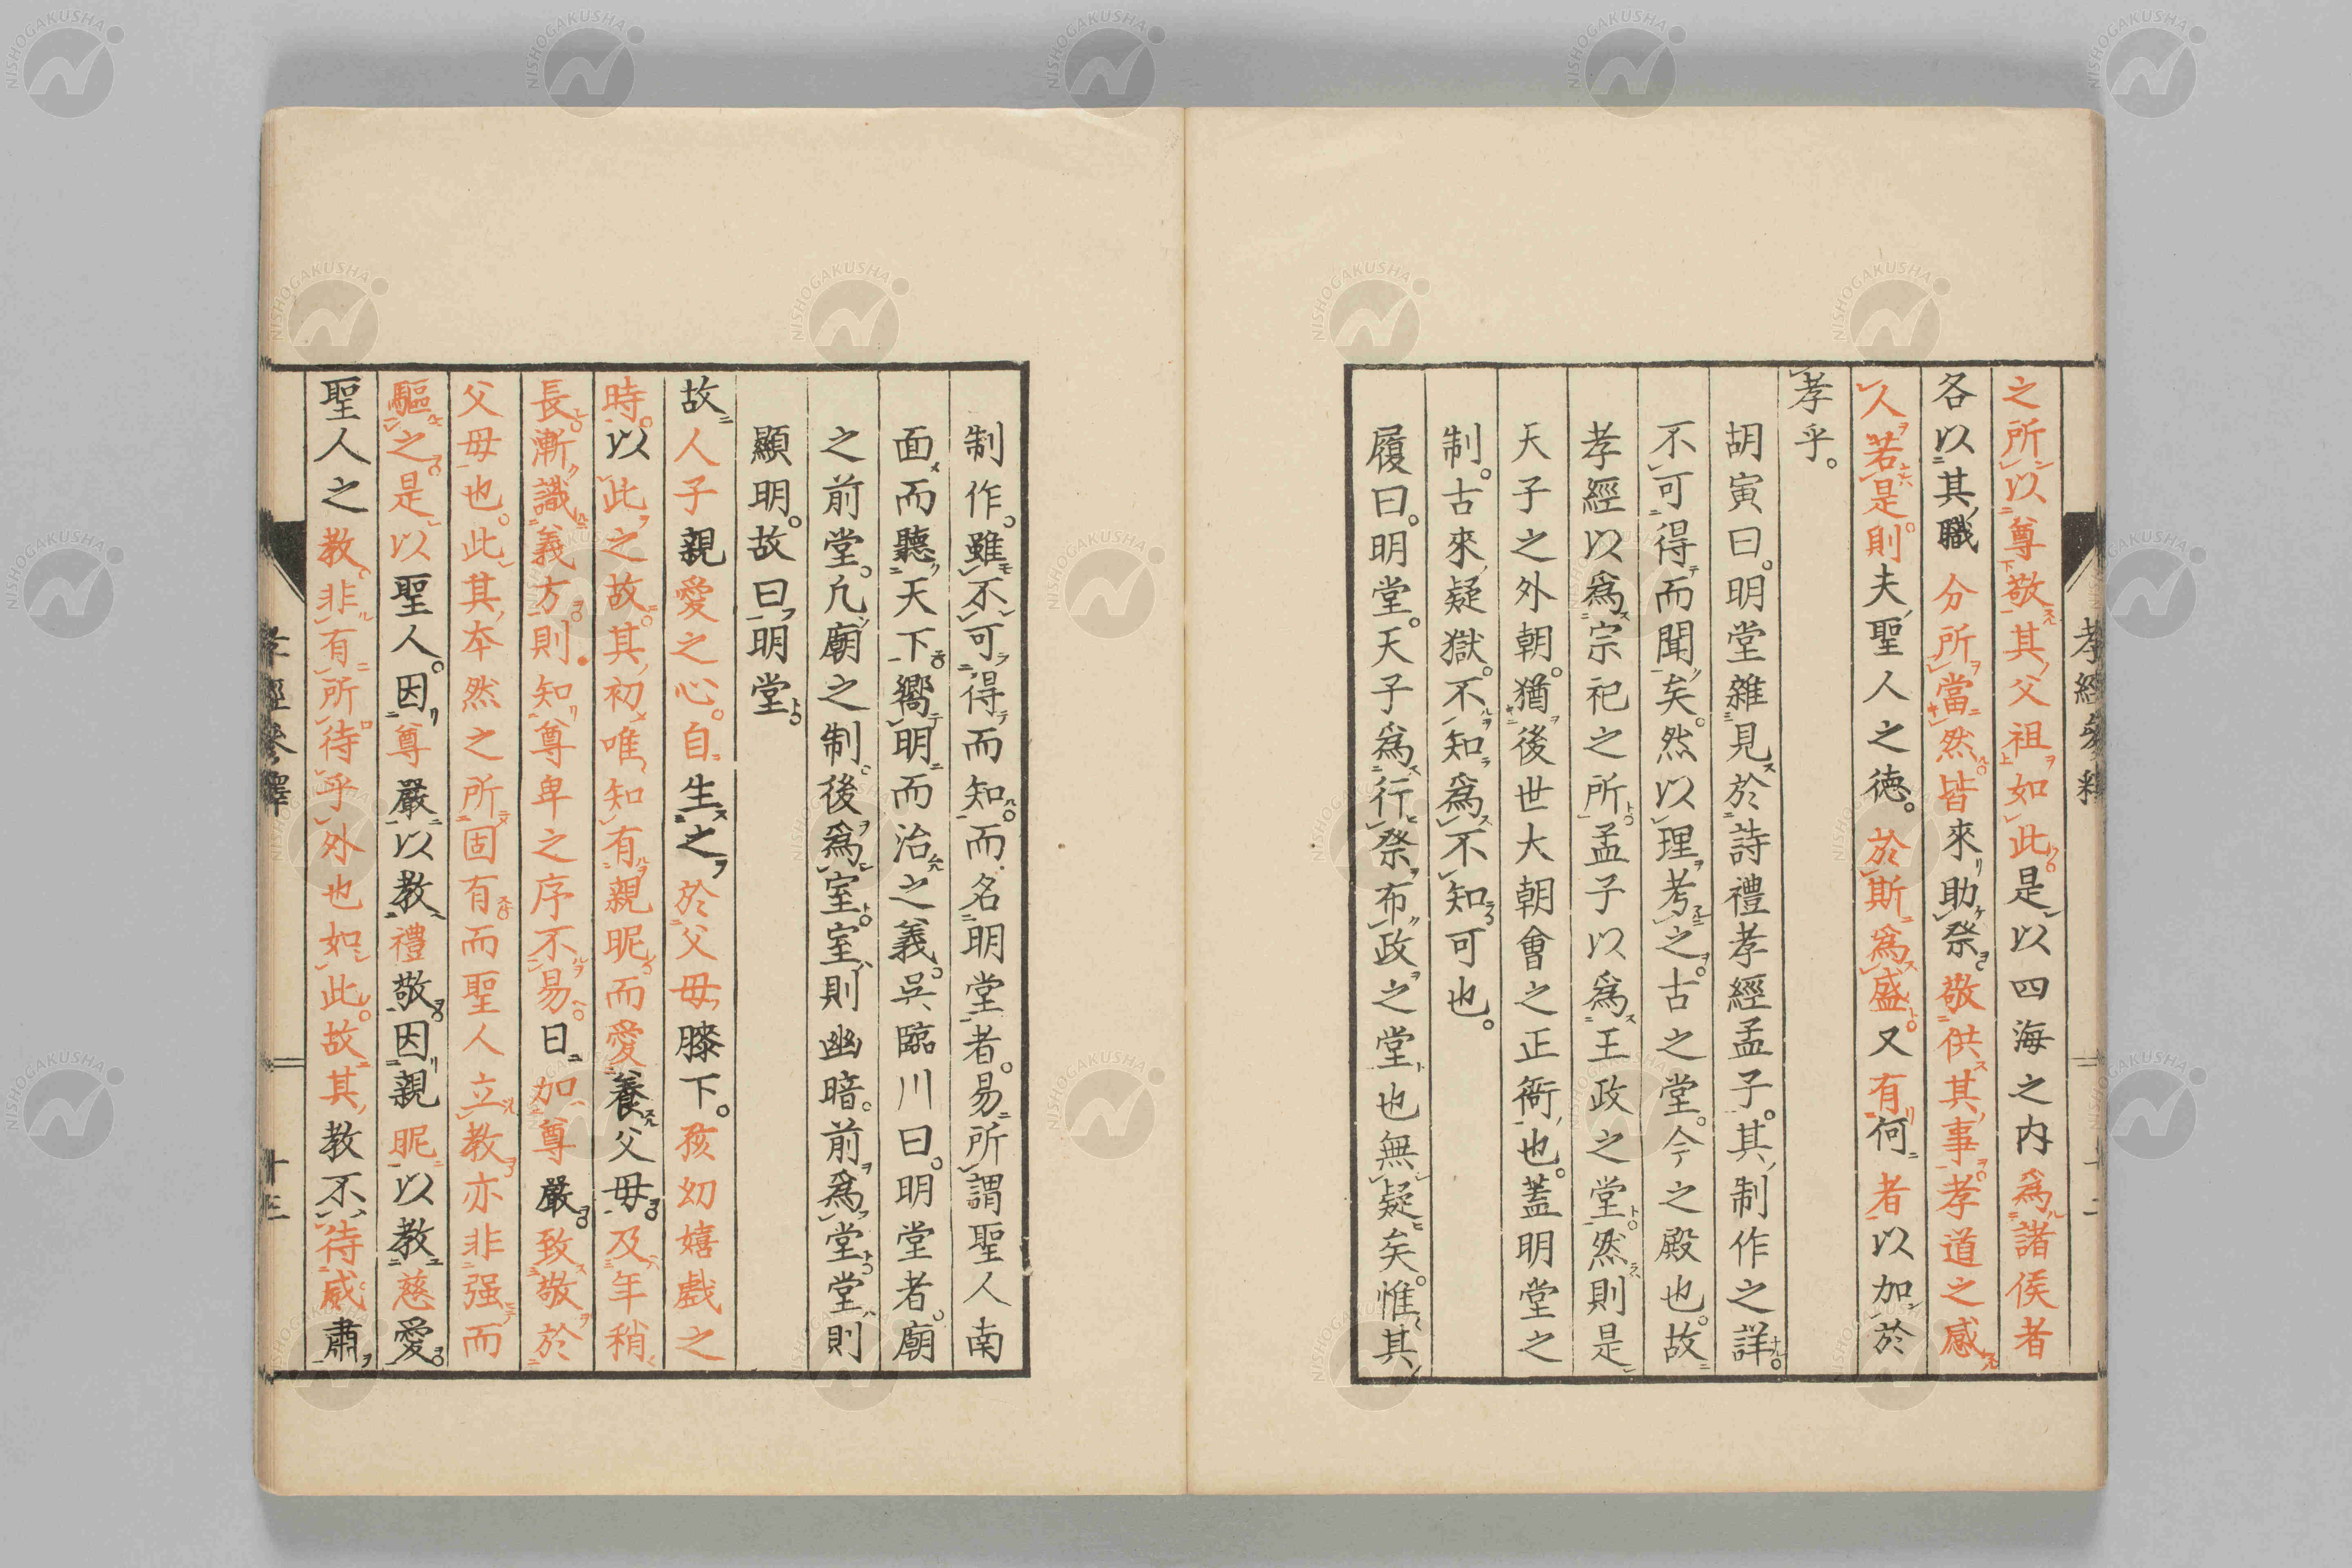 之所以尊敬其父祖如此是以四海之内爲諸侯者
各以其職分所當然皆來助祭敬供其事孝道之感
人若是則夫聖人之德。於斯爲盛又有何者以加於
孝乎。
胡寅曰。明堂雜見於詩禮孝經孟子。其制作之詳
不可得而聞矣。然以理考之。古之堂。今之殿也。故
孝經以爲宗祀之所孟子以爲王政之堂然則是
天子之外朝。猶後世大朝會之正衙也。蓋明堂之
制。古來疑獄。不知爲不知可也。
履曰。明堂。天子爲行祭布政之堂也無疑矣。惟其
孝經參釋
制作。雖不可得而知而名明堂者。易所謂聖人南
面而聽天下嚮明而治之義。吳臨川曰。明堂者。廟
之前堂。凡廟之制。後爲室。室則幽暗。前爲堂。堂則
顯明。故曰明堂。
故人子親愛之心。自生之於父母膝下。孩幼嬉戲之
時。以此之故其初唯知有親昵而愛養父母及年稍
長漸識義方則知尊卑之序不易日加尊嚴致敬於
父母也。此其本然之所固有而聖人立教亦非强而
驅之是以聖人。因尊嚴以教禮敬因親昵以教慈愛
聖人之教。非有所待乎外也如此。故其教不待威肅
孝經參釋
十三